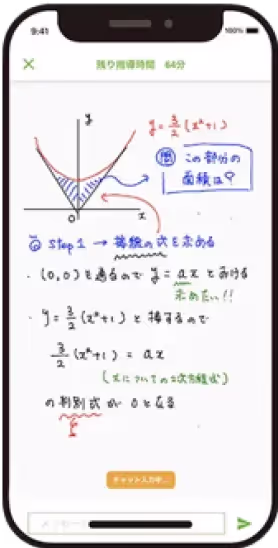 9:41
100%
× 残り指導時間 64分
y
y = 3/2 (x²+1)
問 この部分の
面積は?
O
x
Step1 → 接線の式を求める
・(0,0)を通るので y = ax とおける
求めたい!!
・y = 3/2 (x²+1) と接するので
3/2 (x²+1) = ax
(xについての2次方程式)
の判別式が0となる
チャット入力中...